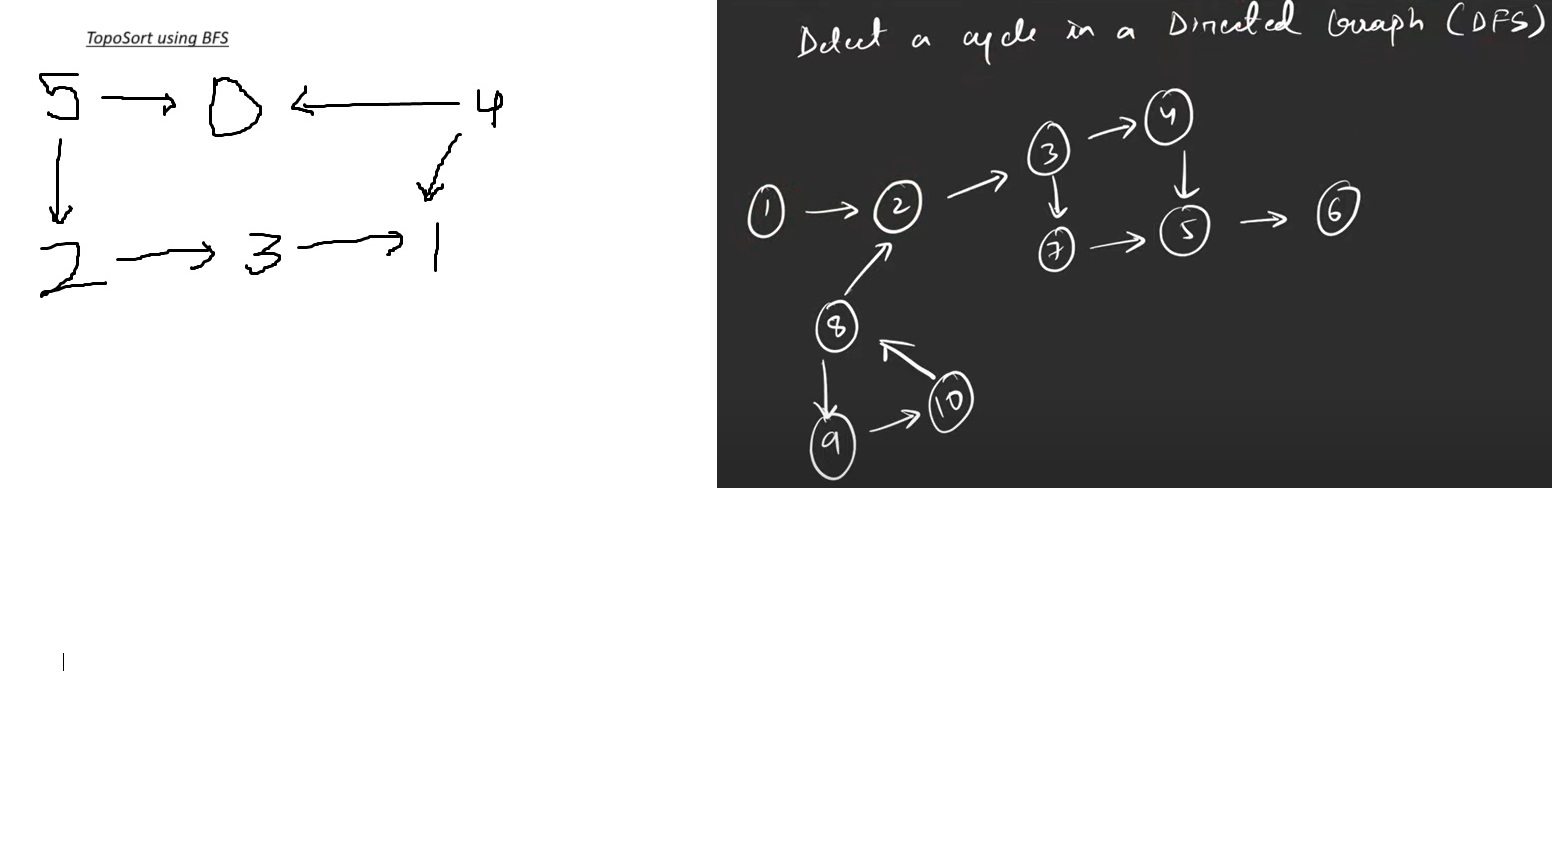 TopoSort using BFS
5 0 4
2 3 1
Detect a cycle in a Directed Graph (DFS)
3 4
1 2 7 5 6
8
9 10